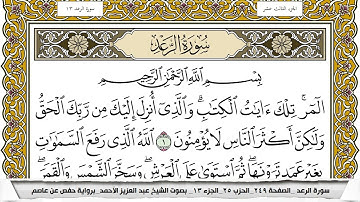 الجزء الثالث عشر
سورة الرعد ١٣
سُورَةُ الرَّعْدِ
بِسْمِ اللَّهِ الرَّحْمَٰنِ الرَّحِيمِ
الٓمٓر ۚ تِلْكَ ءَايَٰتُ الْكِتَٰبِ ۗ وَالَّذِىٓ أُنزِلَ إِلَيْكَ مِن رَّبِّكَ الْحَقُّ
وَلَٰكِنَّ أَكْثَرَ النَّاسِ لَا يُؤْمِنُونَ ١ اللَّهُ الَّذِى رَفَعَ السَّمَٰوَٰتِ
بِغَيْرِ عَمَدٍ تَرَوْنَهَا ۖ ثُمَّ اسْتَوَىٰ عَلَى الْعَرْشِ ۖ وَسَخَّرَ الشَّمْسَ وَالْقَمَرَ ۖ
سورة الرعد _الصفحة ٢٤٩_ الحزب ٢٥_ الجزء ١٣ _ بصوت الشيخ عبد العزيز الأحمد_ برواية حفص عن عاصم